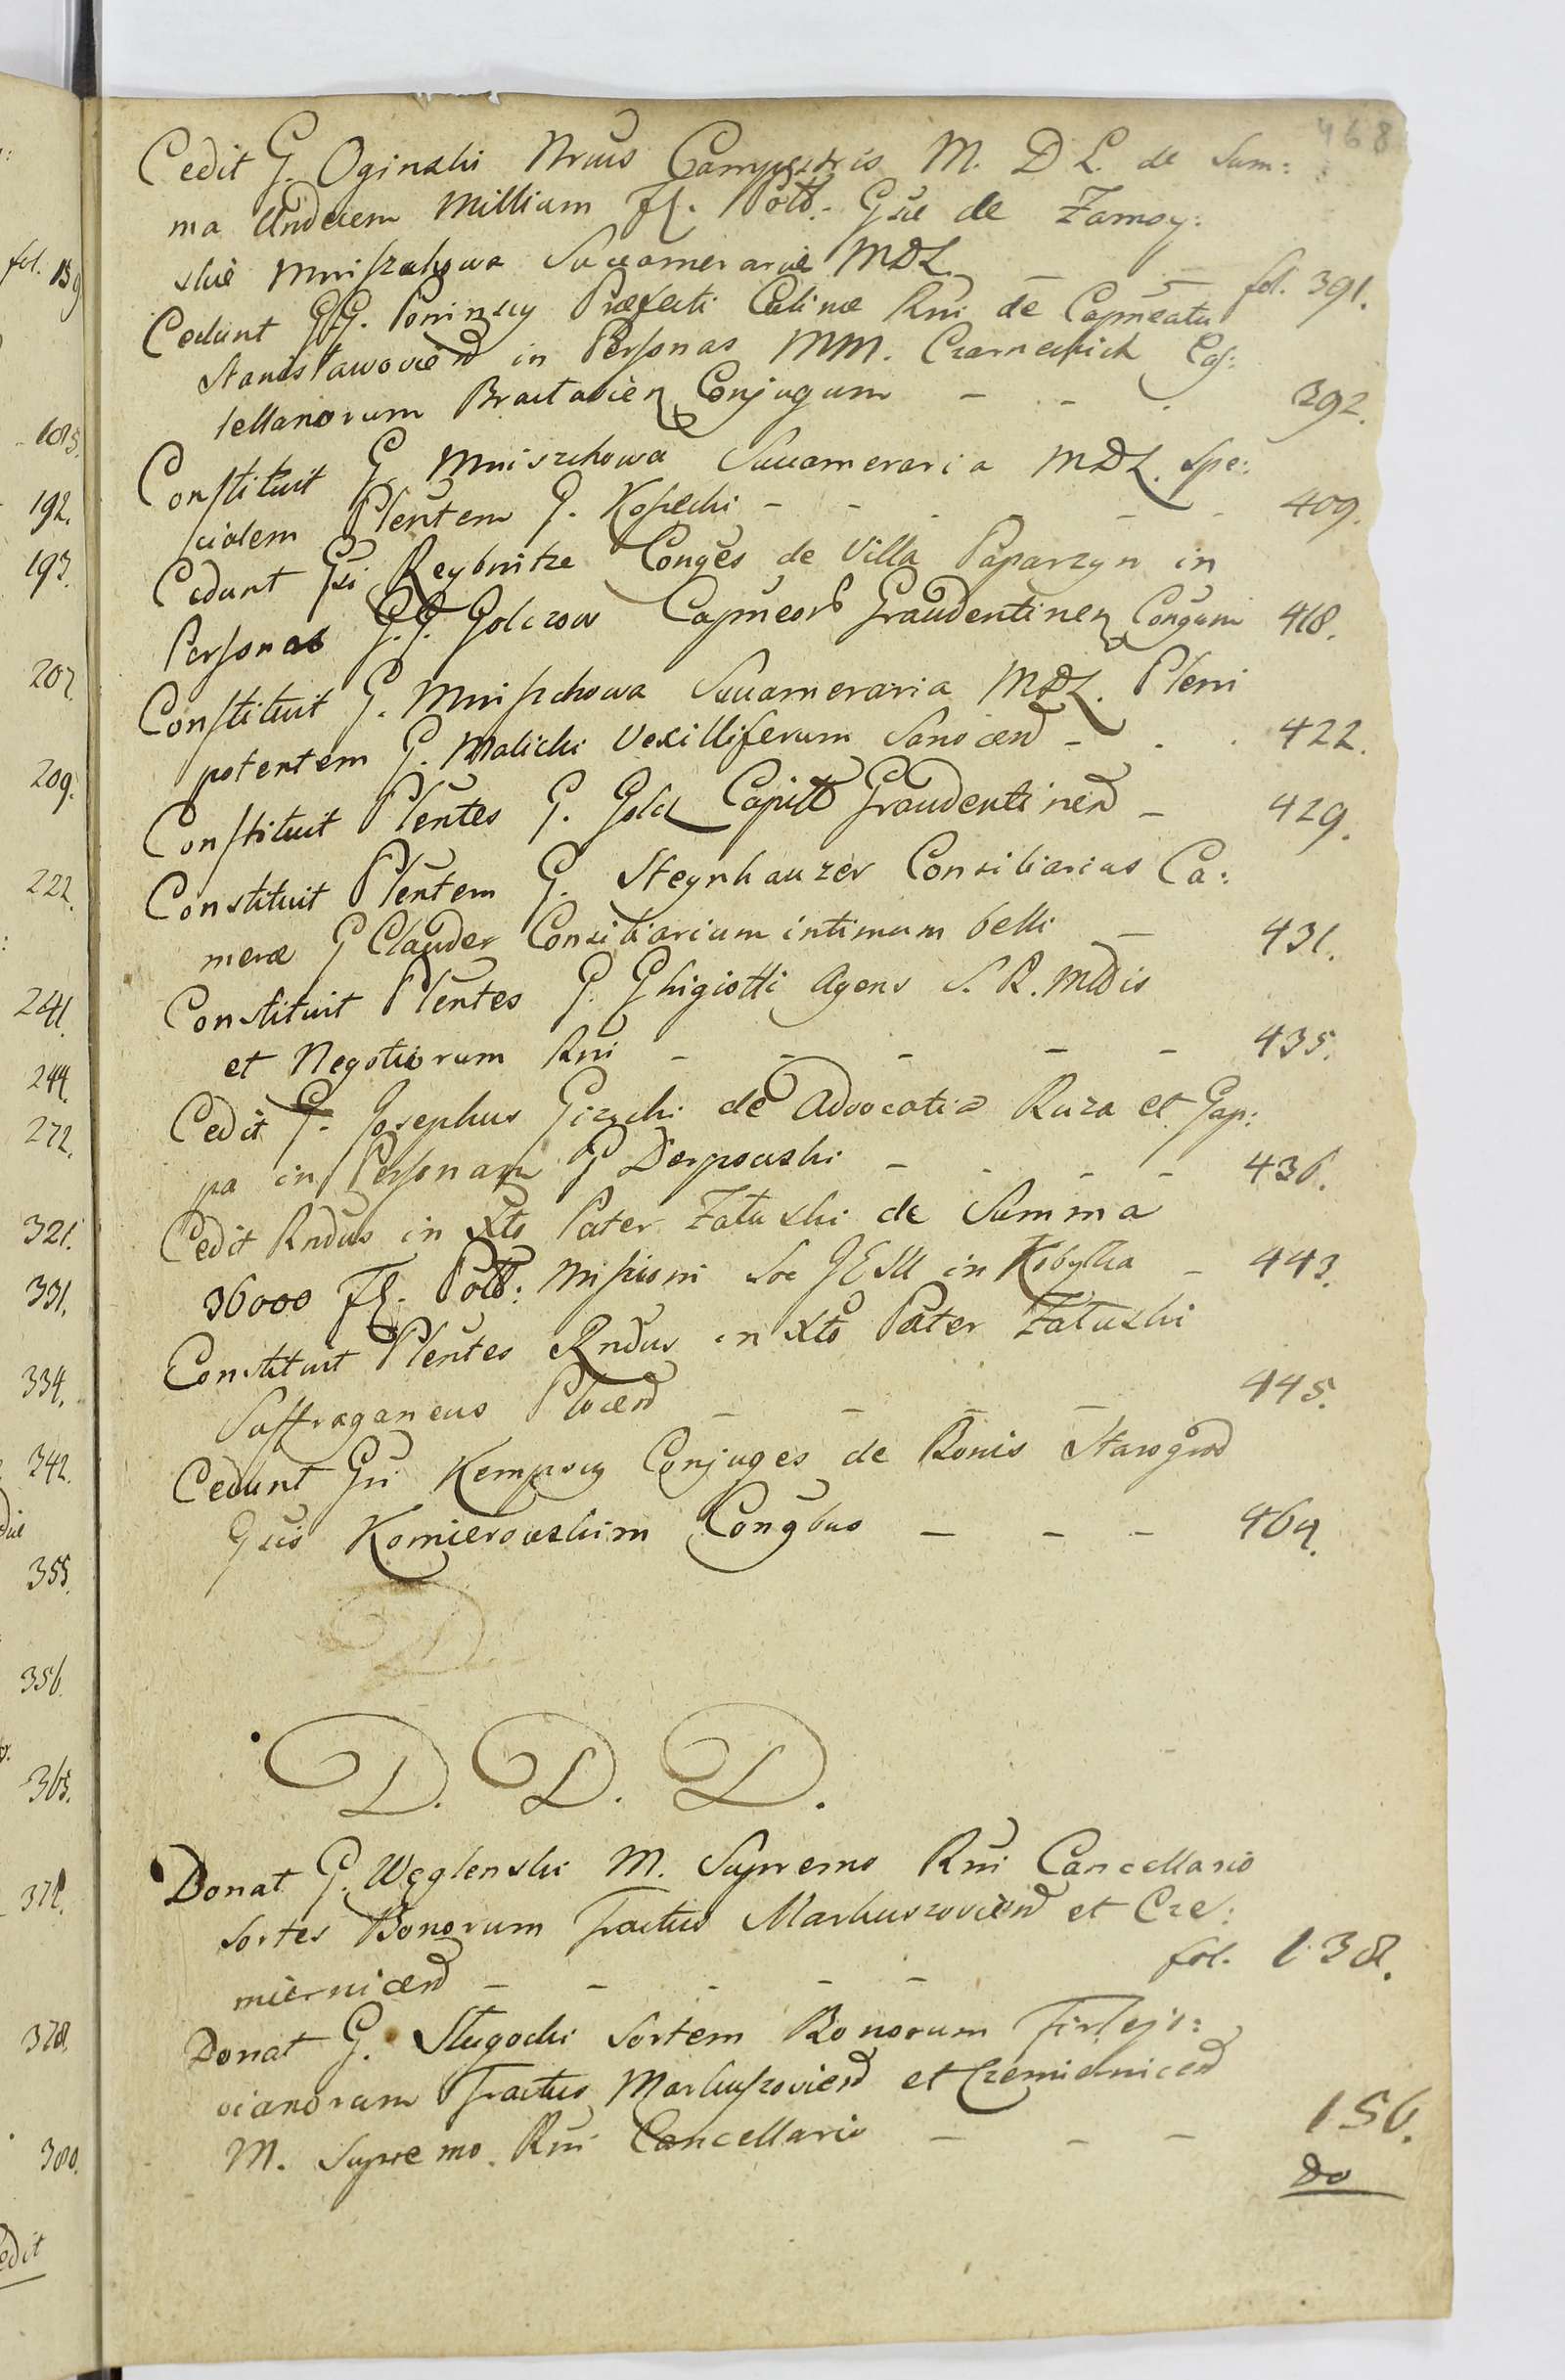 468
Cedit G. Oginski Nrius Campestris M. D L. de Sum:
ma Undecem Millium Fl. Poll. Gsæ de Zamoy:
skie Mniszchowa Succamerariæ MDL. — — fol. 391.
Cedunt GG. Poninscy Præfecti Culinæ Rni de Capneatu
Stanisławovien in Personas MM. Czarneckich Cas:
tellanorum Bractavien Conjugum — - . 392.
Constituit G. Mniszchowa Succameraria MDL. Spe:
cialem Plentem G. Kopecki - - . - . 409.
Cedunt Gsi Reybnitze Conges de Villa Paparzyn in
Personas G.G. Golczow Capneor Graudentinen Congum 418.
Constituit G. Mniszchowa Succameraria MDL. Pleni
potentem G. Malicki Vexilliferum Sanocen - . . 422.
Constituit Plentes G. Golcz Capitt Graudentinen — 429.
Constituit Plentem G. Steynhauzer Consiliarius Ca:
meræ G Clauder Consiliarium intimum belli — 431.
Constituit Plentes G. Ghigiotti Agens S. R. Mttis
et Negotiorum Rni - - - — — 435.
Cedit G. Josephus Gizycki de Advocatia Ruza et Gap:
pa in Personam G Derpowski — . - — 436.
Cedit Rndus in Xto Pater Załuski de Summa
36000 Fl. Poll: Missioni Soc JESU in Kobyłka — 443.
Constituit Plentes Rndus in Xto Pater Załuski
Suffraganeus Plocen — — — — 445.
Cedunt Gsi Kempscy Conjuges de Bonis Starogrod
Gsis Komierowskim Congbus — — — 464.
D
D. D. D.
Donat G. Węglenski M. Supremo Rni Cancellario
Sortes Bonorum Tractus Markuszovien et Cze:
miernicen — — - — — fol. 138.
Donat G. Sługocki Sortem Bonorum Firlejo:
vianorum Tractus Markuszovien et Czemiernicen
M. Supremo Rni Cancellario — — — 156.
Do
fol. 159
185.
192.
193.
207.
209.
222.
241.
244.
272.
321.
331.
334.
342.
355.
356.
365.
378.
380.
edit